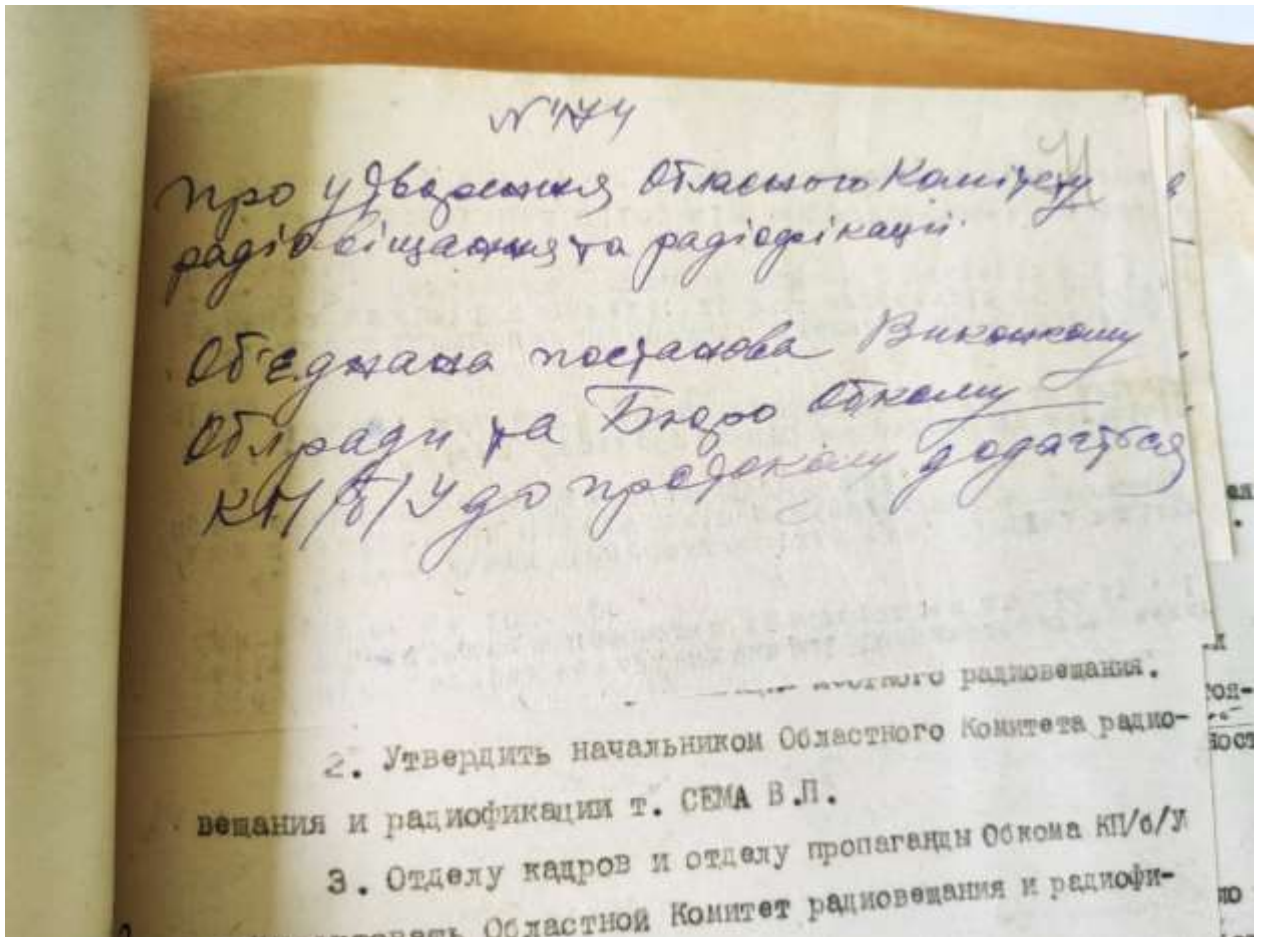 N 174
Про утворення Обласного Комітету
радіовіщання та радіофікації.
Об'єднана постанова Виконкому
Облради та Бюро Обкому
КП/б/У до протоколу додається
местного радиовещания.
2. Утвердить начальником Областного Комитета радио-
вещания и радиофикации т. СЕМА В.П.
3. Отделу кадров и отделу пропаганды Обкома КП/б/У
Областной Комитет радиовещания и радиофи-